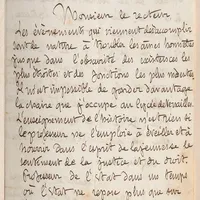 Monsieur le recteur,
Les événements qui viennent de s'accomplir
sont de nature à troubler les âmes honnêtes
jusque dans l'obscurité des existences les
plus droites et des fonctions les plus modestes.
Il m'est impossible de garder davantage
la chaire que j'occupe au lycée de
L'enseignement de l'histoire n'est rien si
le professeur ne l'emploie à éveiller et à
nourrir dans l'esprit de la jeunesse le
sentiment de la justice et du droit.
Professeur de l'Etat dans un temps
où l'Etat ne repose plus que sur